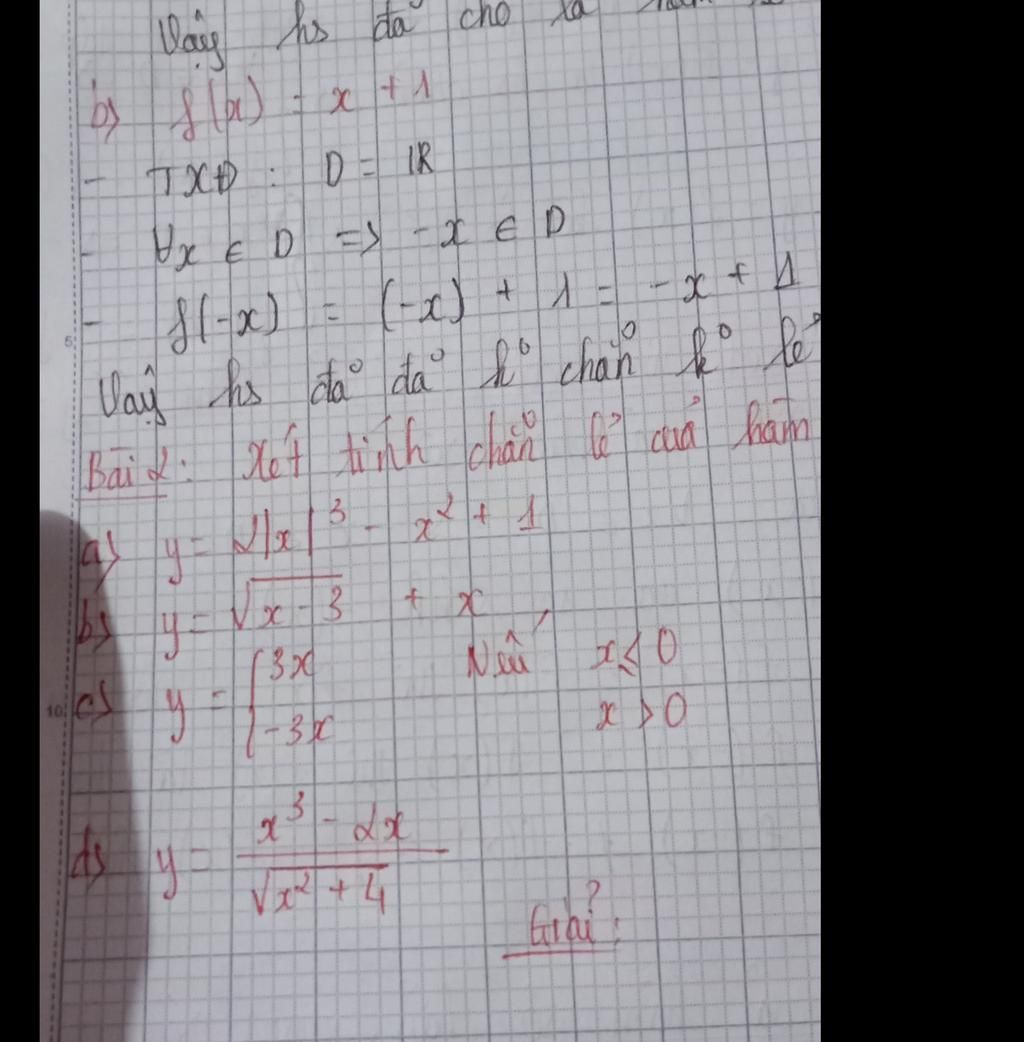 Vậy hs đã cho là
b) f(x) = x + 1
- TXĐ : D = ℝ
- ∀x ∈ D => -x ∈ D
- f(-x) = (-x) + 1 = -x + 1
Vậy hs đã đã ko chẵn ko lẻ
Bài 2: Xét tính chẵn lẻ của hàm
a) y = 2|x|³ - x² + 1
b) y = √(x - 3) + x
c) y = { 3x Nếu x ≤ 0
-3x x > 0
d) y = (x³ - 2x) / √(x² + 4)
Giải: